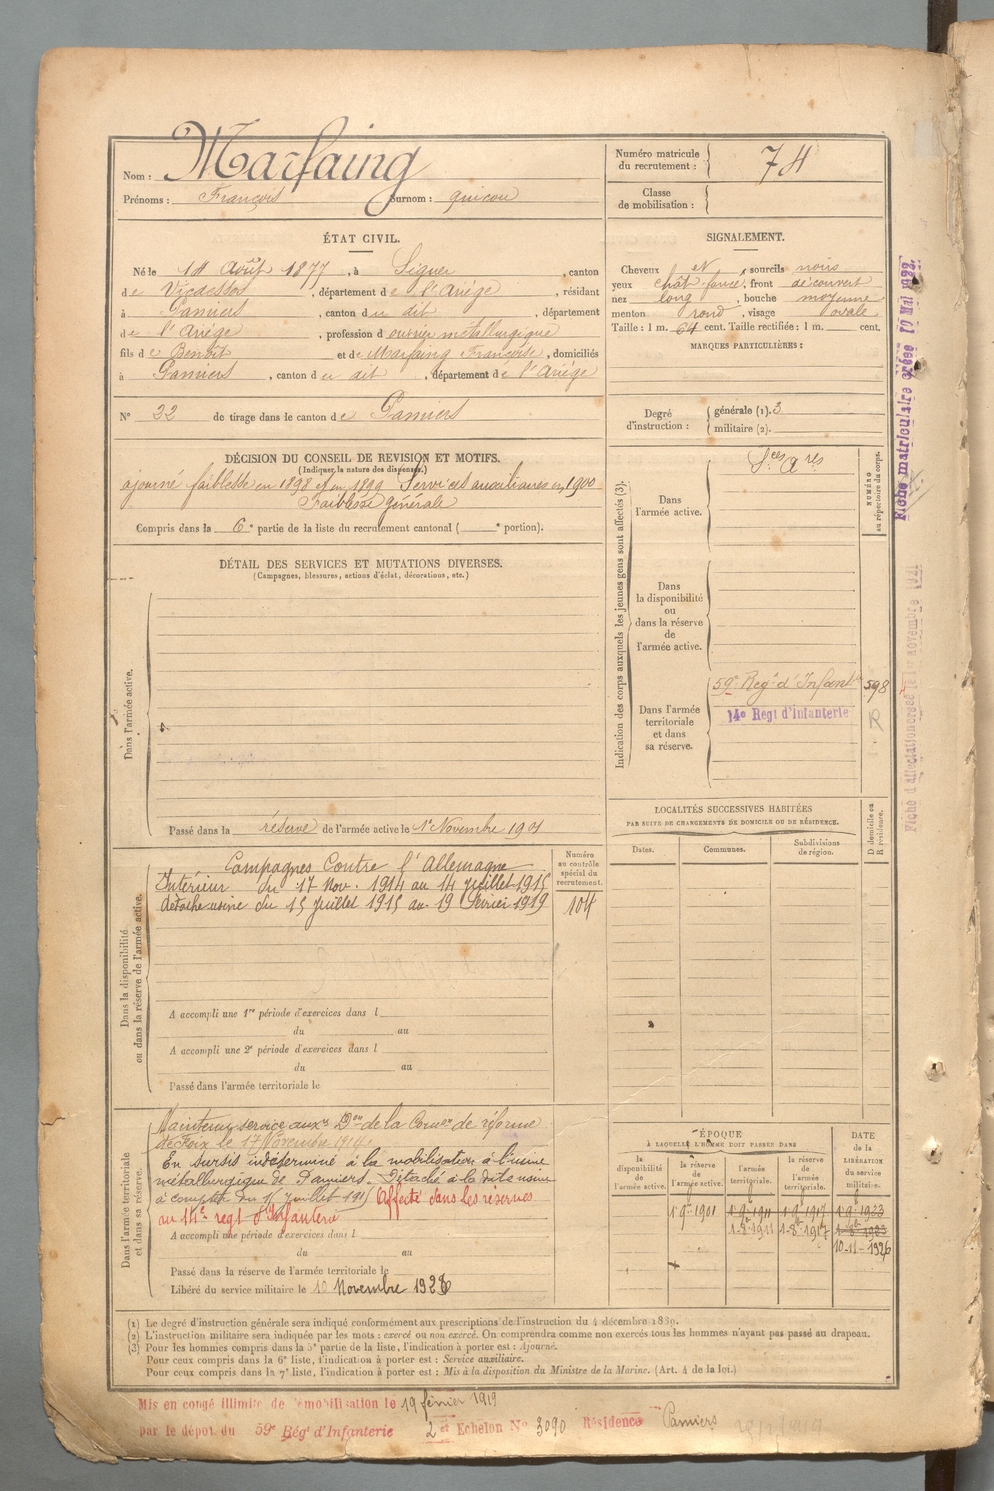 Nom : Marfaing
Prénoms : François Surnom : quicou
Numéro matricule du recrutement : 74
Classe de mobilisation :
ÉTAT CIVIL.
Né le 14 Août 1877, à Siguer, canton
de Vicdessos, département de l'Ariège, résidant
à Pamiers, canton du dit, département
de l'Ariège, profession d'ouvrier métallurgique
fils de Benoît et de Marfaing Françoise, domiciliés
à Pamiers, canton du dit, département de l'Ariège
N° 22 de tirage dans le canton de Pamiers
SIGNALEMENT.
Cheveux et, sourcils noirs
yeux chât. foncé, front découvert
nez long, bouche moyenne
menton rond, visage ovale
Taille : 1 m. 64 cent. Taille rectifiée : 1 m. cent.
MARQUES PARTICULIÈRES :
Degré d'instruction : générale (1). 3
militaire (2).
DÉCISION DU CONSEIL DE REVISION ET MOTIFS.
(Indiquer la nature des dispenses.)
ajourné faiblesse en 1898 et en 1899 Services auxiliaires en 1900
Faiblesse générale
Compris dans la 6e partie de la liste du recrutement cantonal ( e portion).
Indication des corps auxquels les jeunes gens sont affectés (3).
NUMÉRO au répertoire du corps.
Dans l'armée active.
Sces Ares
Dans la disponibilité ou dans la réserve de l'armée active.
Dans l'armée territoriale et dans sa réserve.
59e Regt d'Infantie 598
14e Regt d'Infanterie
DÉTAIL DES SERVICES ET MUTATIONS DIVERSES.
(Campagnes, blessures, actions d'éclat, décorations, etc.)
Dans l'armée active.
Passé dans la réserve de l'armée active le 1er Novembre 1901
LOCALITÉS SUCCESSIVES HABITÉES
PAR SUITE DE CHANGEMENTS DE DOMICILE OU DE RÉSIDENCE.
Dates. Communes. Subdivisions de région. D domicile ou R résidence.
Dans la disponibilité ou dans la réserve de l'armée active.
Numéro au contrôle spécial du recrutement.
104
Campagnes Contre l'Allemagne
Intérieur du 17 Nov. 1914 au 14 juillet 1915
détaché usine du 15 Juillet 1915 au 19 Février 1919
A accompli une 1re période d'exercices dans l
du au
A accompli une 2e période d'exercices dans l
du au
Passé dans l'armée territoriale le
Dans l'armée territoriale et dans sa réserve.
Maintenu service auxre Don de la Comon de réforme
de Foix le 17 Novembre 1914.
En sursis indéterminé à la mobilisation à l'usine
métallurgique de Pamiers. Détaché à la dite usine
à compter du 15 Juillet 1915 Affecté dans les réserves
au 14e regt d'Infanterie
A accompli une période d'exercices dans l
du au
Passé dans la réserve de l'armée territoriale le
Libéré du service militaire le 10 Novembre 1926
ÉPOQUE
À LAQUELLE L'HOMME DOIT PASSER DANS
la disponibilité de l'armée active. la réserve de l'armée active. l'armée territoriale. la réserve de l'armée territoriale.
DATE de la LIBÉRATION du service militaire.
1 9bre 1901 1 9 1911 1 9 1917 1 9 1923
1-8bre 1911 1-8bre 1917 1-8bre 1923
10-11-1926
(1) Le degré d'instruction générale sera indiqué conformément aux prescriptions de l'instruction du 4 décembre 1889.
(2) L'instruction militaire sera indiquée par les mots : exercé ou non exercé. On comprendra comme non exercés tous les hommes n'ayant pas passé au drapeau.
(3) Pour les hommes compris dans la 5e partie de la liste, l'indication à porter est : Ajourné.
Pour ceux compris dans la 6e liste, l'indication à porter est : Service auxiliaire.
Pour ceux compris dans la 7e liste, l'indication à porter est : Mis à la disposition du Ministre de la Marine. (Art. 4 de la loi.)
Mis en congé illimité de démobilisation le 19 février 1919
par le dépôt du 59e Régt d'Infanterie 2e Echelon N° 3090 Résidence Pamiers
Fiche matriculaire créée 10 Mai 1922.
Fiche d'affectation créée le 1er novembre 1921